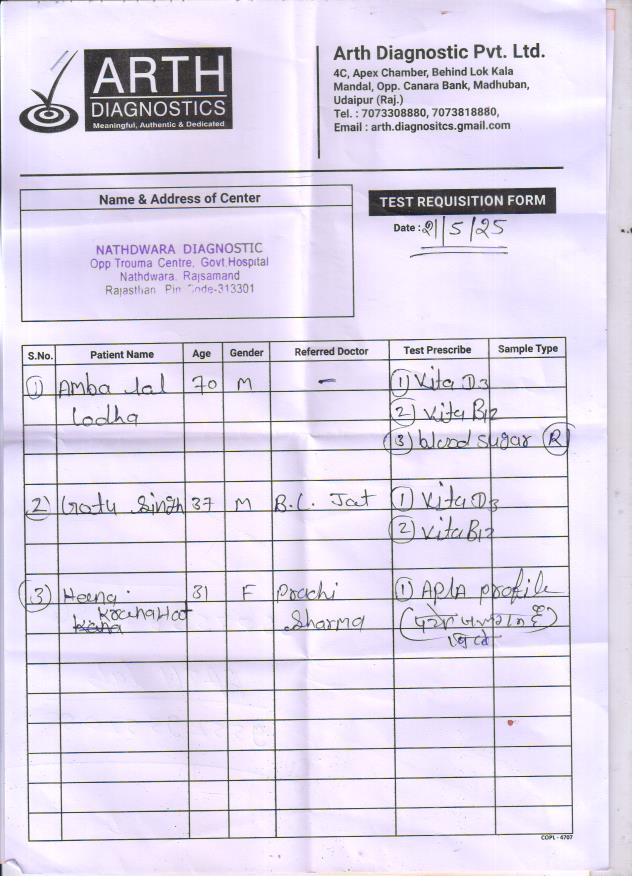 ARTH
DIAGNOSTICS
Meaningful, Authentic & Dedicated
Arth Diagnostic Pvt. Ltd.
4C, Apex Chamber, Behind Lok Kala
Mandal, Opp. Canara Bank, Madhuban,
Udaipur (Raj.)
Tel. : 7073308880, 7073818880,
Email : arth.diagnositcs.gmail.com
Name & Address of Center
TEST REQUISITION FORM
Date : 21/5/25
NATHDWARA DIAGNOSTIC
Opp Trouma Centre, Govt Hospital
Nathdwara. Rajsamand
Rajasthan Pin Code-313301
S.No. Patient Name Age Gender Referred Doctor Test Prescribe Sample Type
1 Amba lal 70 M - 1 Vita D3
Lodha 2 Vita B12
3 blood sugar R
2 Gatu Singh 37 M B.L. Jat 1 Vita D3
2 Vita B12
3 Heena 31 F Prachi 1 APLA profile
Sharma
COPL - 4707